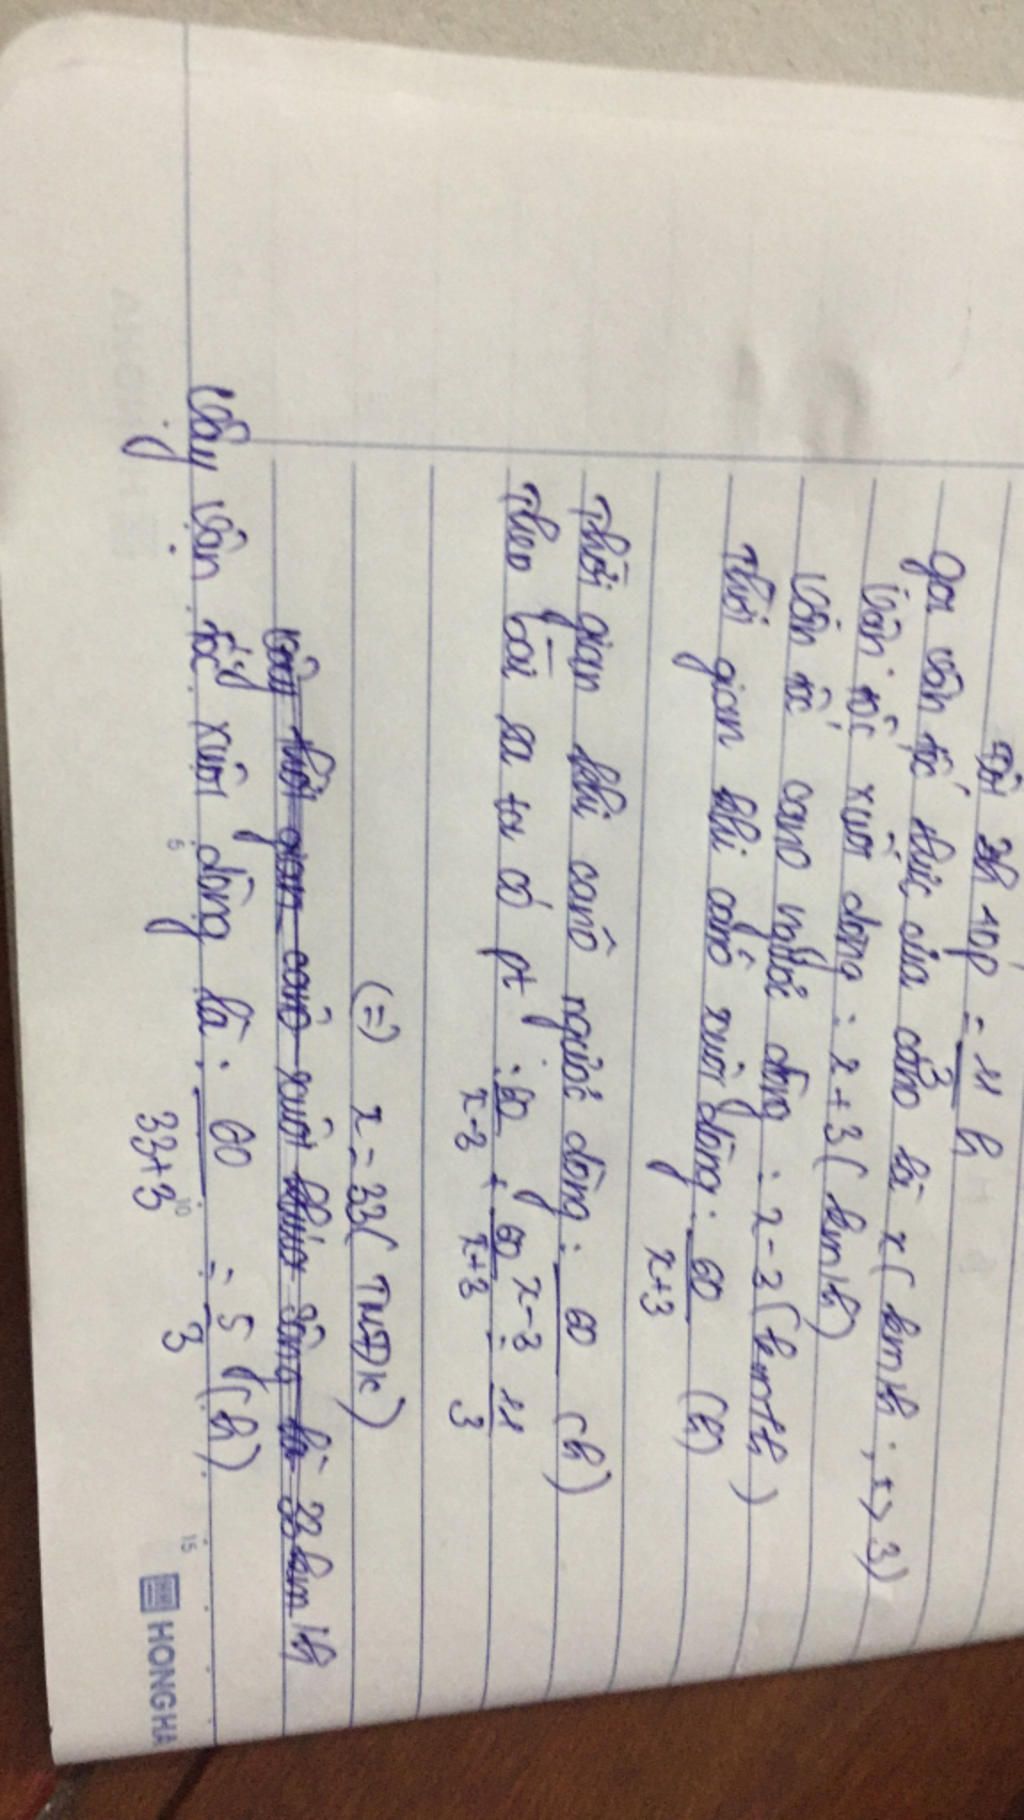 Đổi 3h 40p = 11/3 h
Gọi vận tốc thực của cano là x (km/h; x > 3)
Vận tốc xuôi dòng : x + 3 (km/h)
Vận tốc cano ngược dòng : x - 3 (km/h)
Thời gian khi cano xuôi dòng : 60/x+3 (h)
Thời gian khi canô ngược dòng : 60/x-3 (h)
Theo bài ra ta có pt : 60/x-3 + 60/x+3 = 11/3
(=) x = 33 (TMĐK)
Vậy thời gian canô xuôi sông là 33 km/h
Vậy vận tốc xuôi dòng là : 60/33+3 = 5/3 (h)
5 10 15
HONG HA